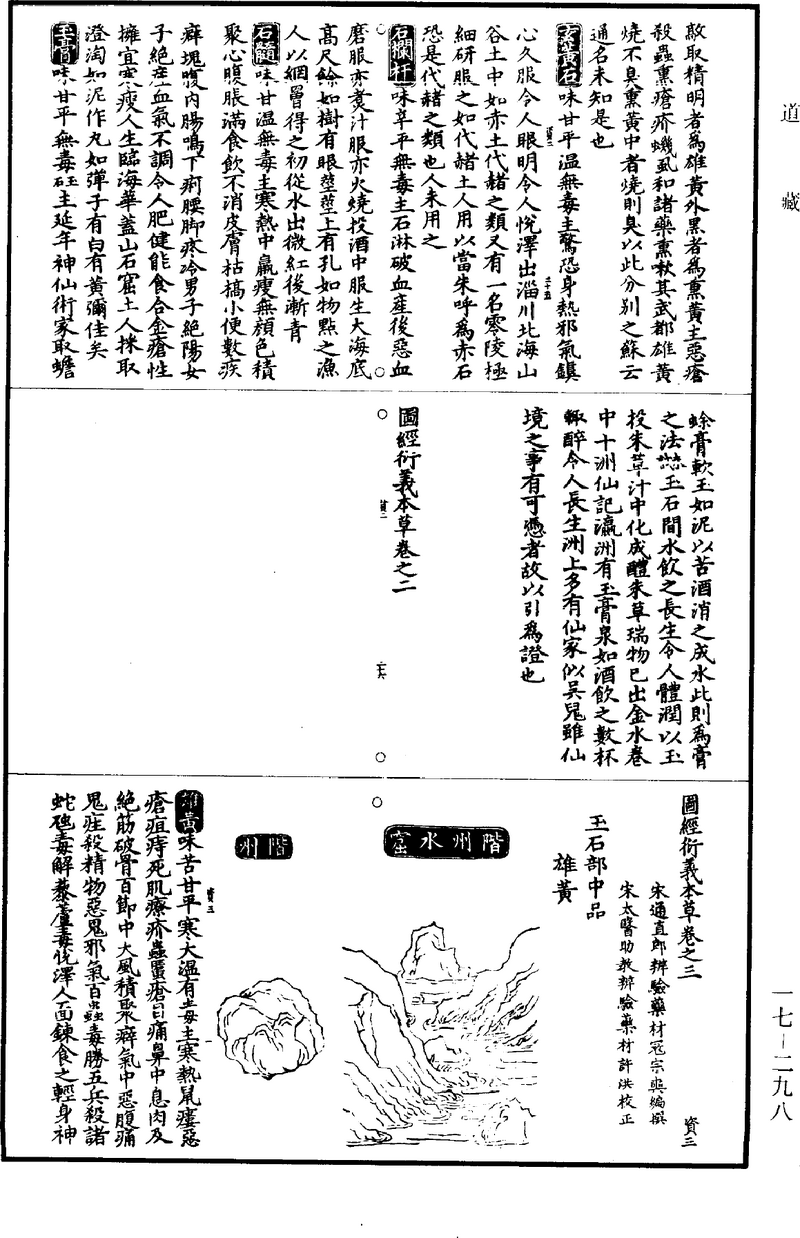 道藏
敵取精明者為雄黃外黑者為熏黃主惡瘡
殺蟲熏瘡疥蟣虱和諸藥熏嗽其武都雄黃
燒不臭熏黃中者燒則臭以此分別之蘇云
通名未知是也
味甘平溫無毒主驚恐身熱邪氣鎮
心久服令人眼明令人悅澤出淄川北海山
谷土中如赤土代赭之類又有一名零陵極
細研服之如代赭土人用以當朱呼為赤石
恐是代赭之類也人未用之
石欄杆味辛平無毒主石淋破血產後惡血
磨服亦煮汁服亦火燒投酒中服生大海底
高尺餘如樹有眼莖莖上有孔如物點之漁
人以網罾得之初從水出微紅後漸青
石髓味甘溫無毒主寒熱中羸瘦無顏色積
聚心腹脹滿食飲不消皮膚枯槁小便數疾
癖塊腹內腸鳴下痢腰腳疼冷男子絕陽女
子絕產血氣不調令人肥健能食合金瘡性
擁宜寒瘦人生臨海華蓋山石窟土人採取
澄淘如泥作丸如彈子有白有黃彌佳矣
玉膏味甘平無毒玉主延年神仙術家取蟾
蜍膏軟玉如泥以苦酒消之成水此則為膏
之法玉石間水飲之長生令人體潤以玉
投朱草汁中化成醴朱草瑞物已出金水卷
中十洲仙記瀛洲有玉膏泉如酒飲之數杯
輒醉令人長生洲上多有仙家似吳兒雖仙
境之事有可憑者故以引為證也
圖經衍義本草卷之二
圖經衍義本草卷之三
資三
宋通直郎辨驗藥材寇宗奭編撰
宋太醫助教辨驗藥材許洪校正
玉石部中品
雄黃
階州水窟
階州
雄黃味苦甘平寒大溫有毒主寒熱鼠瘻惡
瘡疽痔死肌療疥蟲䘌瘡目痛鼻中息肉及
絕筋破骨百節中大風積聚癖氣中惡腹痛
鬼疰殺精物惡鬼邪氣百蟲毒勝五兵殺諸
蛇虺毒解藜蘆毒悅澤人面鍊食之輕身神
一七-二九八